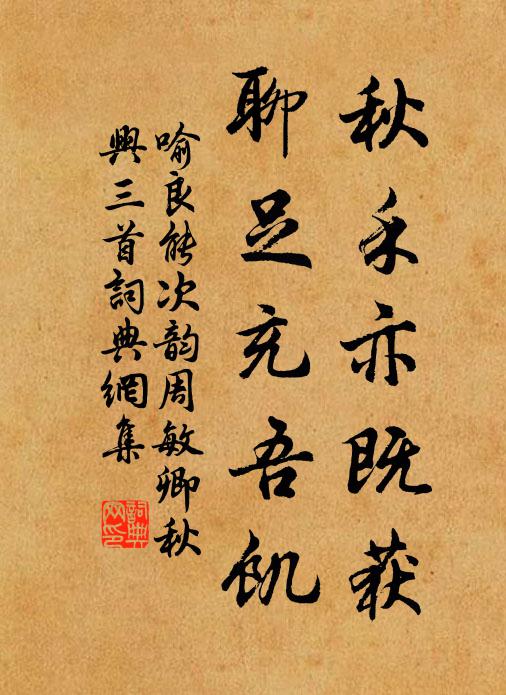 秋禾亦既获
聊足充吾饥
喻良能次韵周敏卿秋
興三首詞典網集
詞典
网印